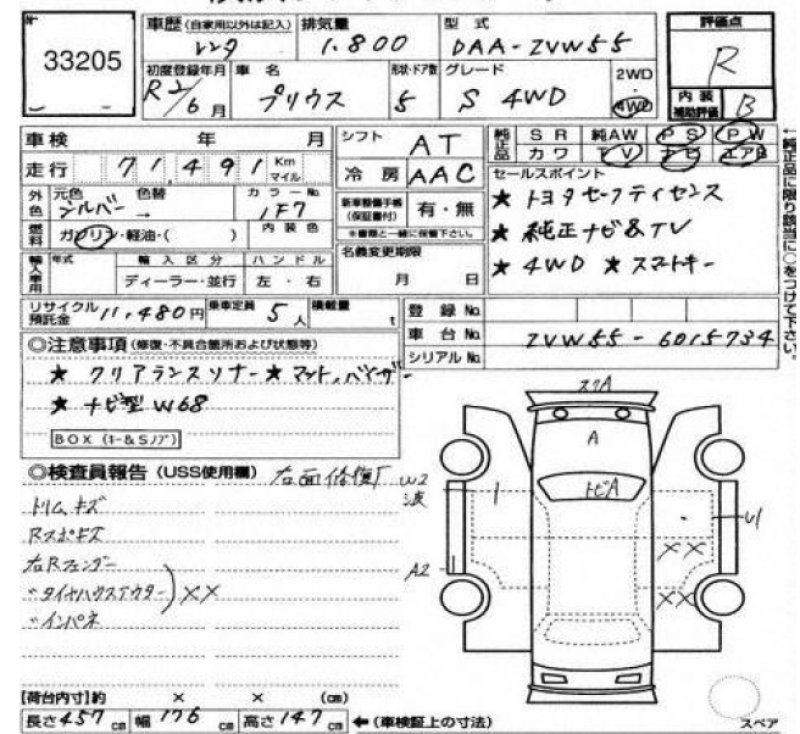 33205
車歴 (自家用以外は記入) レンタ
排気量 1.800
型式 DAA-ZVW55
評価点 R
初度登録年月 R2/6月
車名 プリウス
形状・ドア数 5
グレード S 4WD
2WD
4WD
内装補助評価 B
車検 年 月
シフト AT
純正品 SR 純AW PS PW
カワ TV ナビ エアB
走行 71,491 Km マイル
冷房 AAC
セールスポイント
★ トヨタセーフティセンス
★ 純正ナビ&TV
★ 4WD ★ スマートキー
外色 元色 シルバー 色替 →
カラーNo. 1F7
新車整備手帳 (保証書付) 有・無
※書類と一緒に保管下さい。
燃料 ガソリン・軽油・( )
内装色
名義変更期限 月 日
輸入車用 年式 輸入区分 ディーラー・並行
ハンドル 左・右
←純正品に限り該当に○をつけて下さい。
リサイクル預託金 11,480円
乗車定員 5人
積載量 t
登録No.
車台No. ZVW55-6015734
シリアルNo.
◎注意事項 (修復・不具合箇所および状態等)
★ クリアランスソナー ★ マット,バイザー
★ ナビ型 W68
BOX (キー&Sノブ)
◎検査員報告 (USS使用欄) 右面修復厂 W2
波
トリム キズ
Rスポキズ
右Rフェンダー
〃タイヤハウスアウター XX
〃インパネ
スクA
A
トビA
U1
XX
A2
XX
【荷台内寸】約 × × (cm)
長さ 457 cm 幅 176 cm 高さ 147 cm ←(車検証上の寸法)
スペア